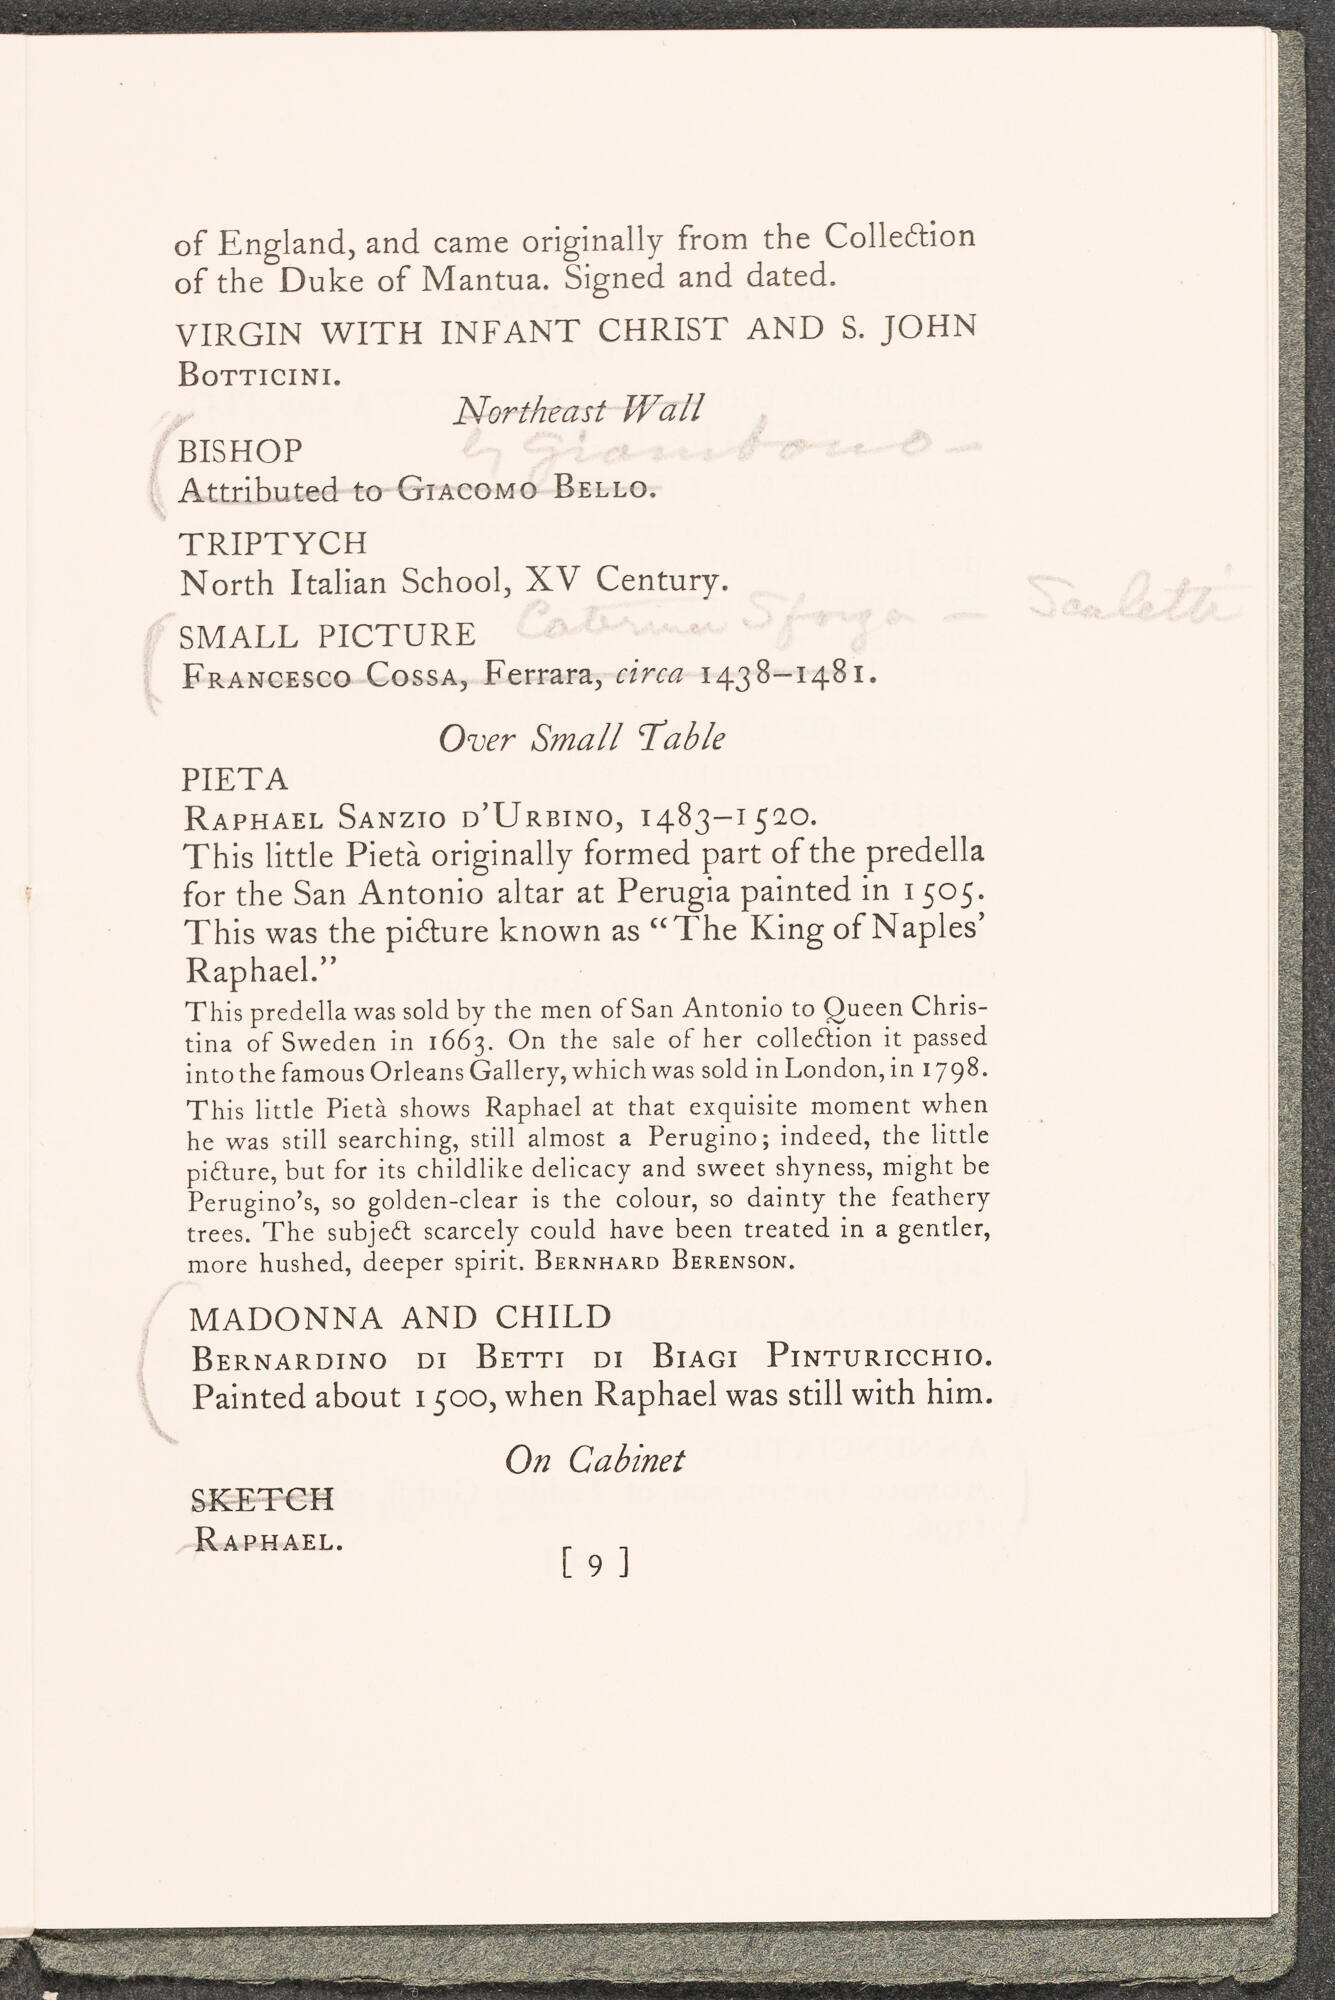 of England, and came originally from the Collection
of the Duke of Mantua. Signed and dated.
VIRGIN WITH INFANT CHRIST AND S. JOHN
BOTTICINI.
Northeast Wall
by Giambono —
BISHOP
Attributed to GIACOMO BELLO.
TRIPTYCH
North Italian School, XV Century.
Caterina Sforza — Scaletti
SMALL PICTURE
FRANCESCO COSSA, Ferrara, circa 1438–1481.
Over Small Table
PIETA
RAPHAEL SANZIO D'URBINO, 1483–1520.
This little Pietà originally formed part of the predella
for the San Antonio altar at Perugia painted in 1505.
This was the picture known as “The King of Naples’
Raphael.”
This predella was sold by the men of San Antonio to Queen Chris-
tina of Sweden in 1663. On the sale of her collection it passed
into the famous Orleans Gallery, which was sold in London, in 1798.
This little Pietà shows Raphael at that exquisite moment when
he was still searching, still almost a Perugino; indeed, the little
picture, but for its childlike delicacy and sweet shyness, might be
Perugino’s, so golden-clear is the colour, so dainty the feathery
trees. The subject scarcely could have been treated in a gentler,
more hushed, deeper spirit. BERNHARD BERENSON.
MADONNA AND CHILD
BERNARDINO DI BETTI DI BIAGI PINTURICCHIO.
Painted about 1500, when Raphael was still with him.
On Cabinet
SKETCH
RAPHAEL.
[ 9 ]